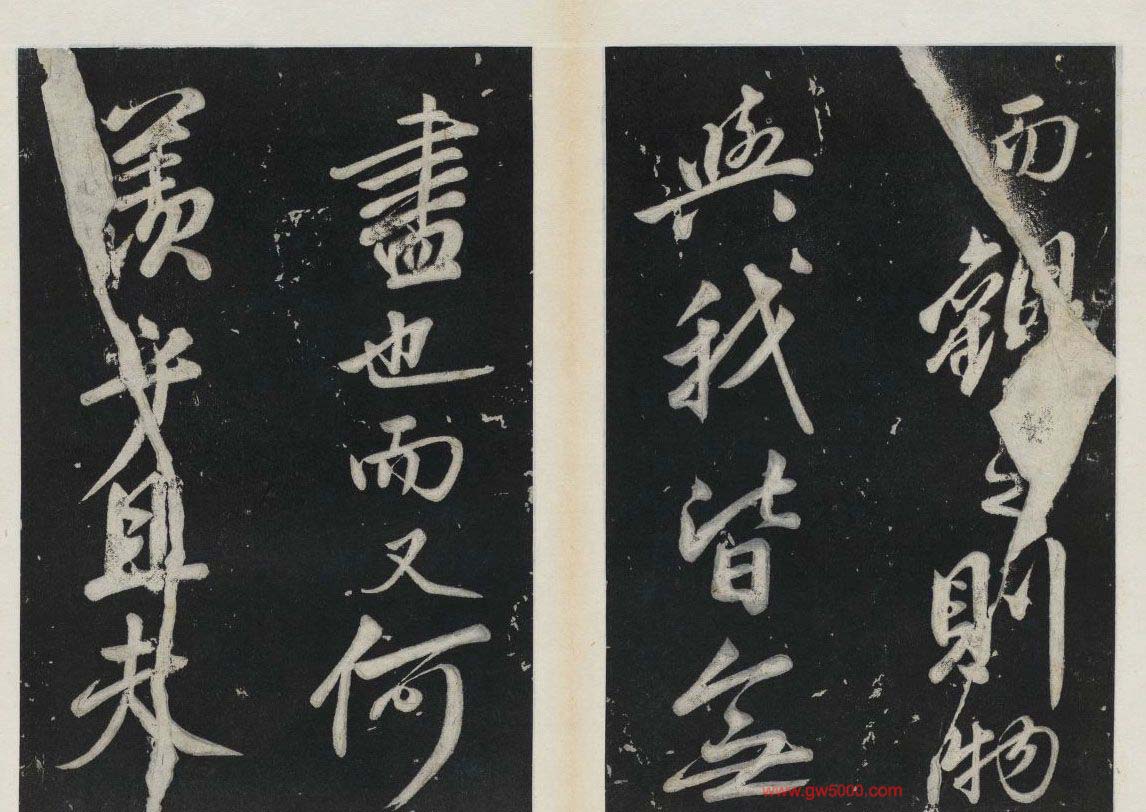 而觀之則物
與我皆無
盡也而又何
羨乎且夫
www.gw5000.com